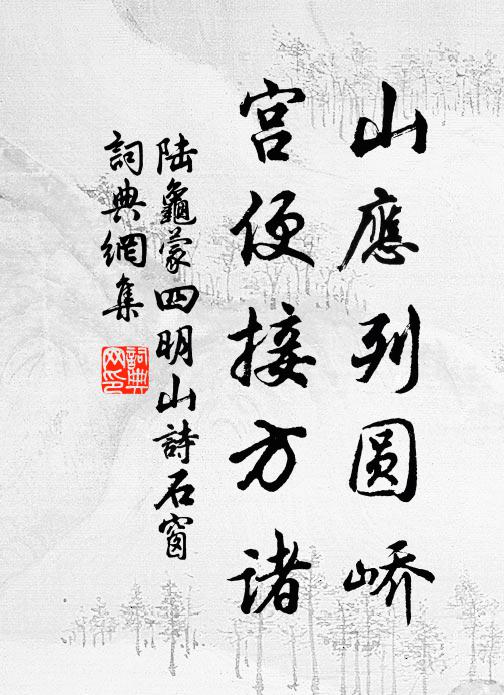 山應列圆峤
宫便接方诸
陆龜蒙四明山詩石窗
詞典網集
詞典网印